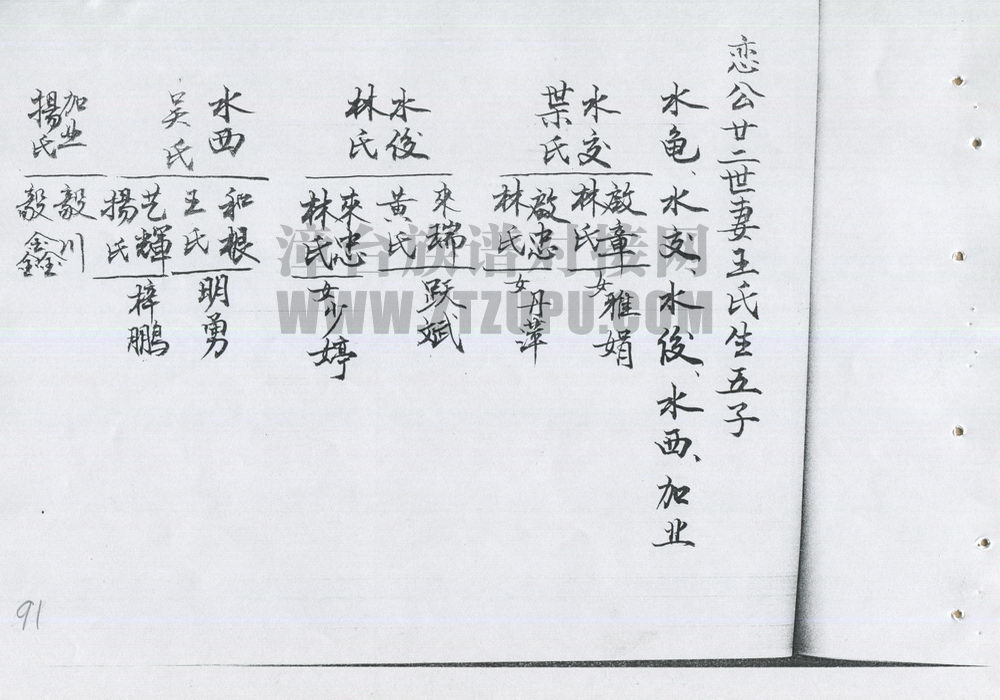 恋公廿二世妻王氏生五子
水龟、水交、水俊、水西、加业
水交
葉氏
啟章
林氏
女雅娟
啟忠
林氏
女丹萍
水俊
林氏
來瑞
黄氏
跃斌
來忠
林氏
女少婷
水西
吴氏
和根
王氏
明勇
艺輝
揚氏
梓鵬
加业
揚氏
毅川
毅鑫
漳台族谱对接网
WWW.ZTZUPU.COM
91